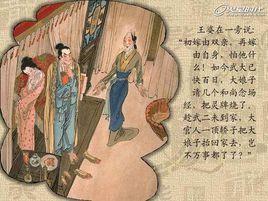 王婆在一旁说：
“初嫁由双亲，再嫁
由自身，怕他什
么！如今武大已
快百日，大娘子
请几个和尚念场
经，把灵牌烧了，
趁武二未到家，大
官人一顶轿子把大
娘子抬回家去，岂
不万事都了了？”